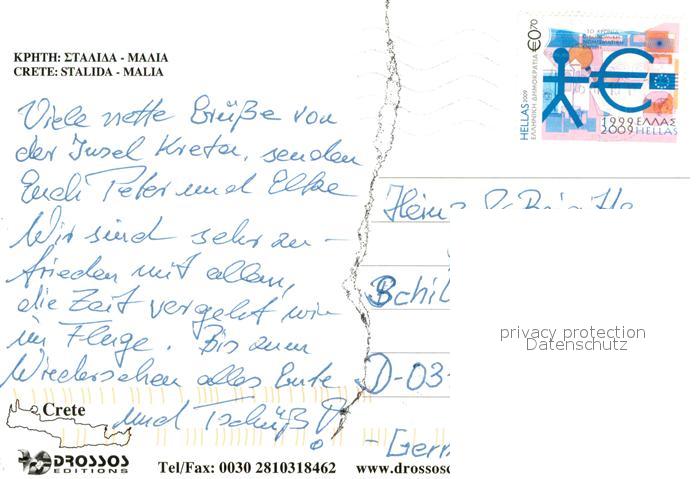 ΚΡΗΤΗ: ΣΤΑΛΙΔΑ - ΜΑΛΙΑ
CRETE: STALIDA - MALIA
Viele nette Grüße von
der Insel Kreta, senden
Euch Peter und Elke
Wir sind sehr zu-
frieden mit allem,
die Zeit vergeht wie
im Fluge. Bis zum
Wiedersehen alles Gute
und Tschüß!
Crete
DROSSOS
EDITIONS
Tel/Fax: 0030 2810318462 www.drossos
€0,70
HELLAS 2009
ΕΛΛΗΝΙΚΗ ΔΗΜΟΚΡΑΤΙΑ
10 ΧΡΟΝΙΑ
€
1999 ΕΛΛΑΣ
2009 HELLAS
Schil
D-03
- Germ
privacy protection
Datenschutz